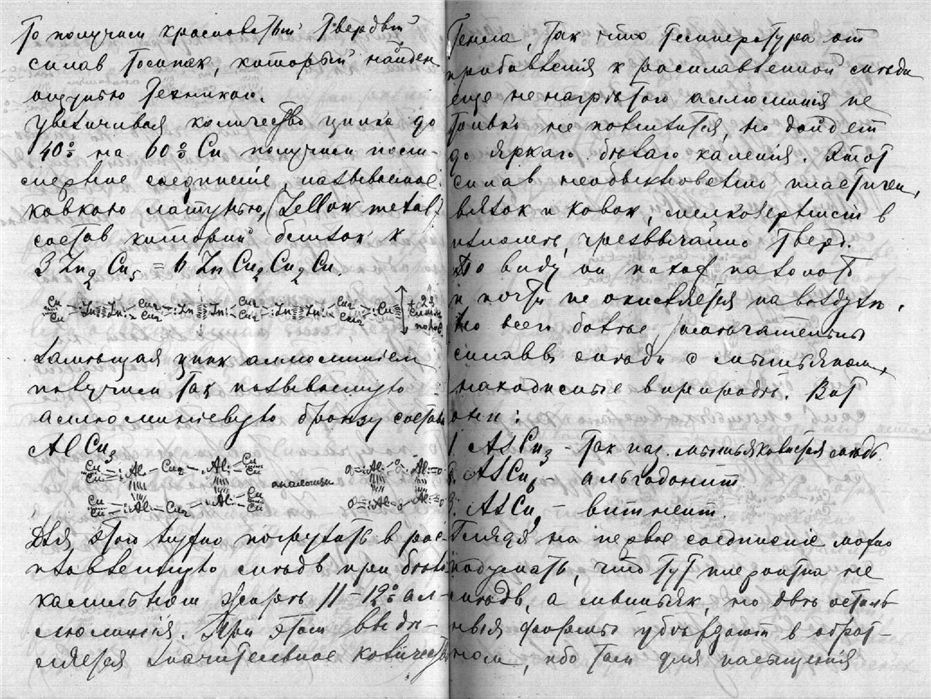 то получим красноватый твердый
сплав Томпак, который найден
ощупью техникой.
Увеличивая количество цинка до
40% на 60% Cu получим
соединение, называемое
ковкою латунью, (Yellow metal)
состав который близок к
3 Zn₂ Cu₅ = 6 Zn Cu₂ Cu₂ Cu
Замещая цинк алюминием
получим так называемую
алюминиевую бронзу состава
AlCu₃
аналогии
Для этого нужно погружать в рас-
плавленную медь при бело-
калильном жаре 11–12% ал-
люминия. При этом выде-
ляется значительное количество
тепла, так что температура от
прибавления к расплавленной меди
еще не нагретого аллюминия не
только не понизится, но дойдет
до яркаго белаго каления. Этот
сплав необыкновенно пластичен,
вязок и ковок, мелкозернист в
изломе, чрезвычайно тверд.
По виду он похож на золото
и почти не окисляется на воздухе.
Но всего более замечательны
сплавы меди с мышьяком,
находимые в природе. Вот
они:
1. AsCu₃ – так наз. мышьяковистая медь
2. AsCu₆ – альгодонит
3. AsCu₉ – витнеит.
Глядя на первое соединение можно
подумать, что тут не
медь, а мышьяк, но две осталь-
ныя формы убеждают в обрат-
ном, ибо там для насыщения